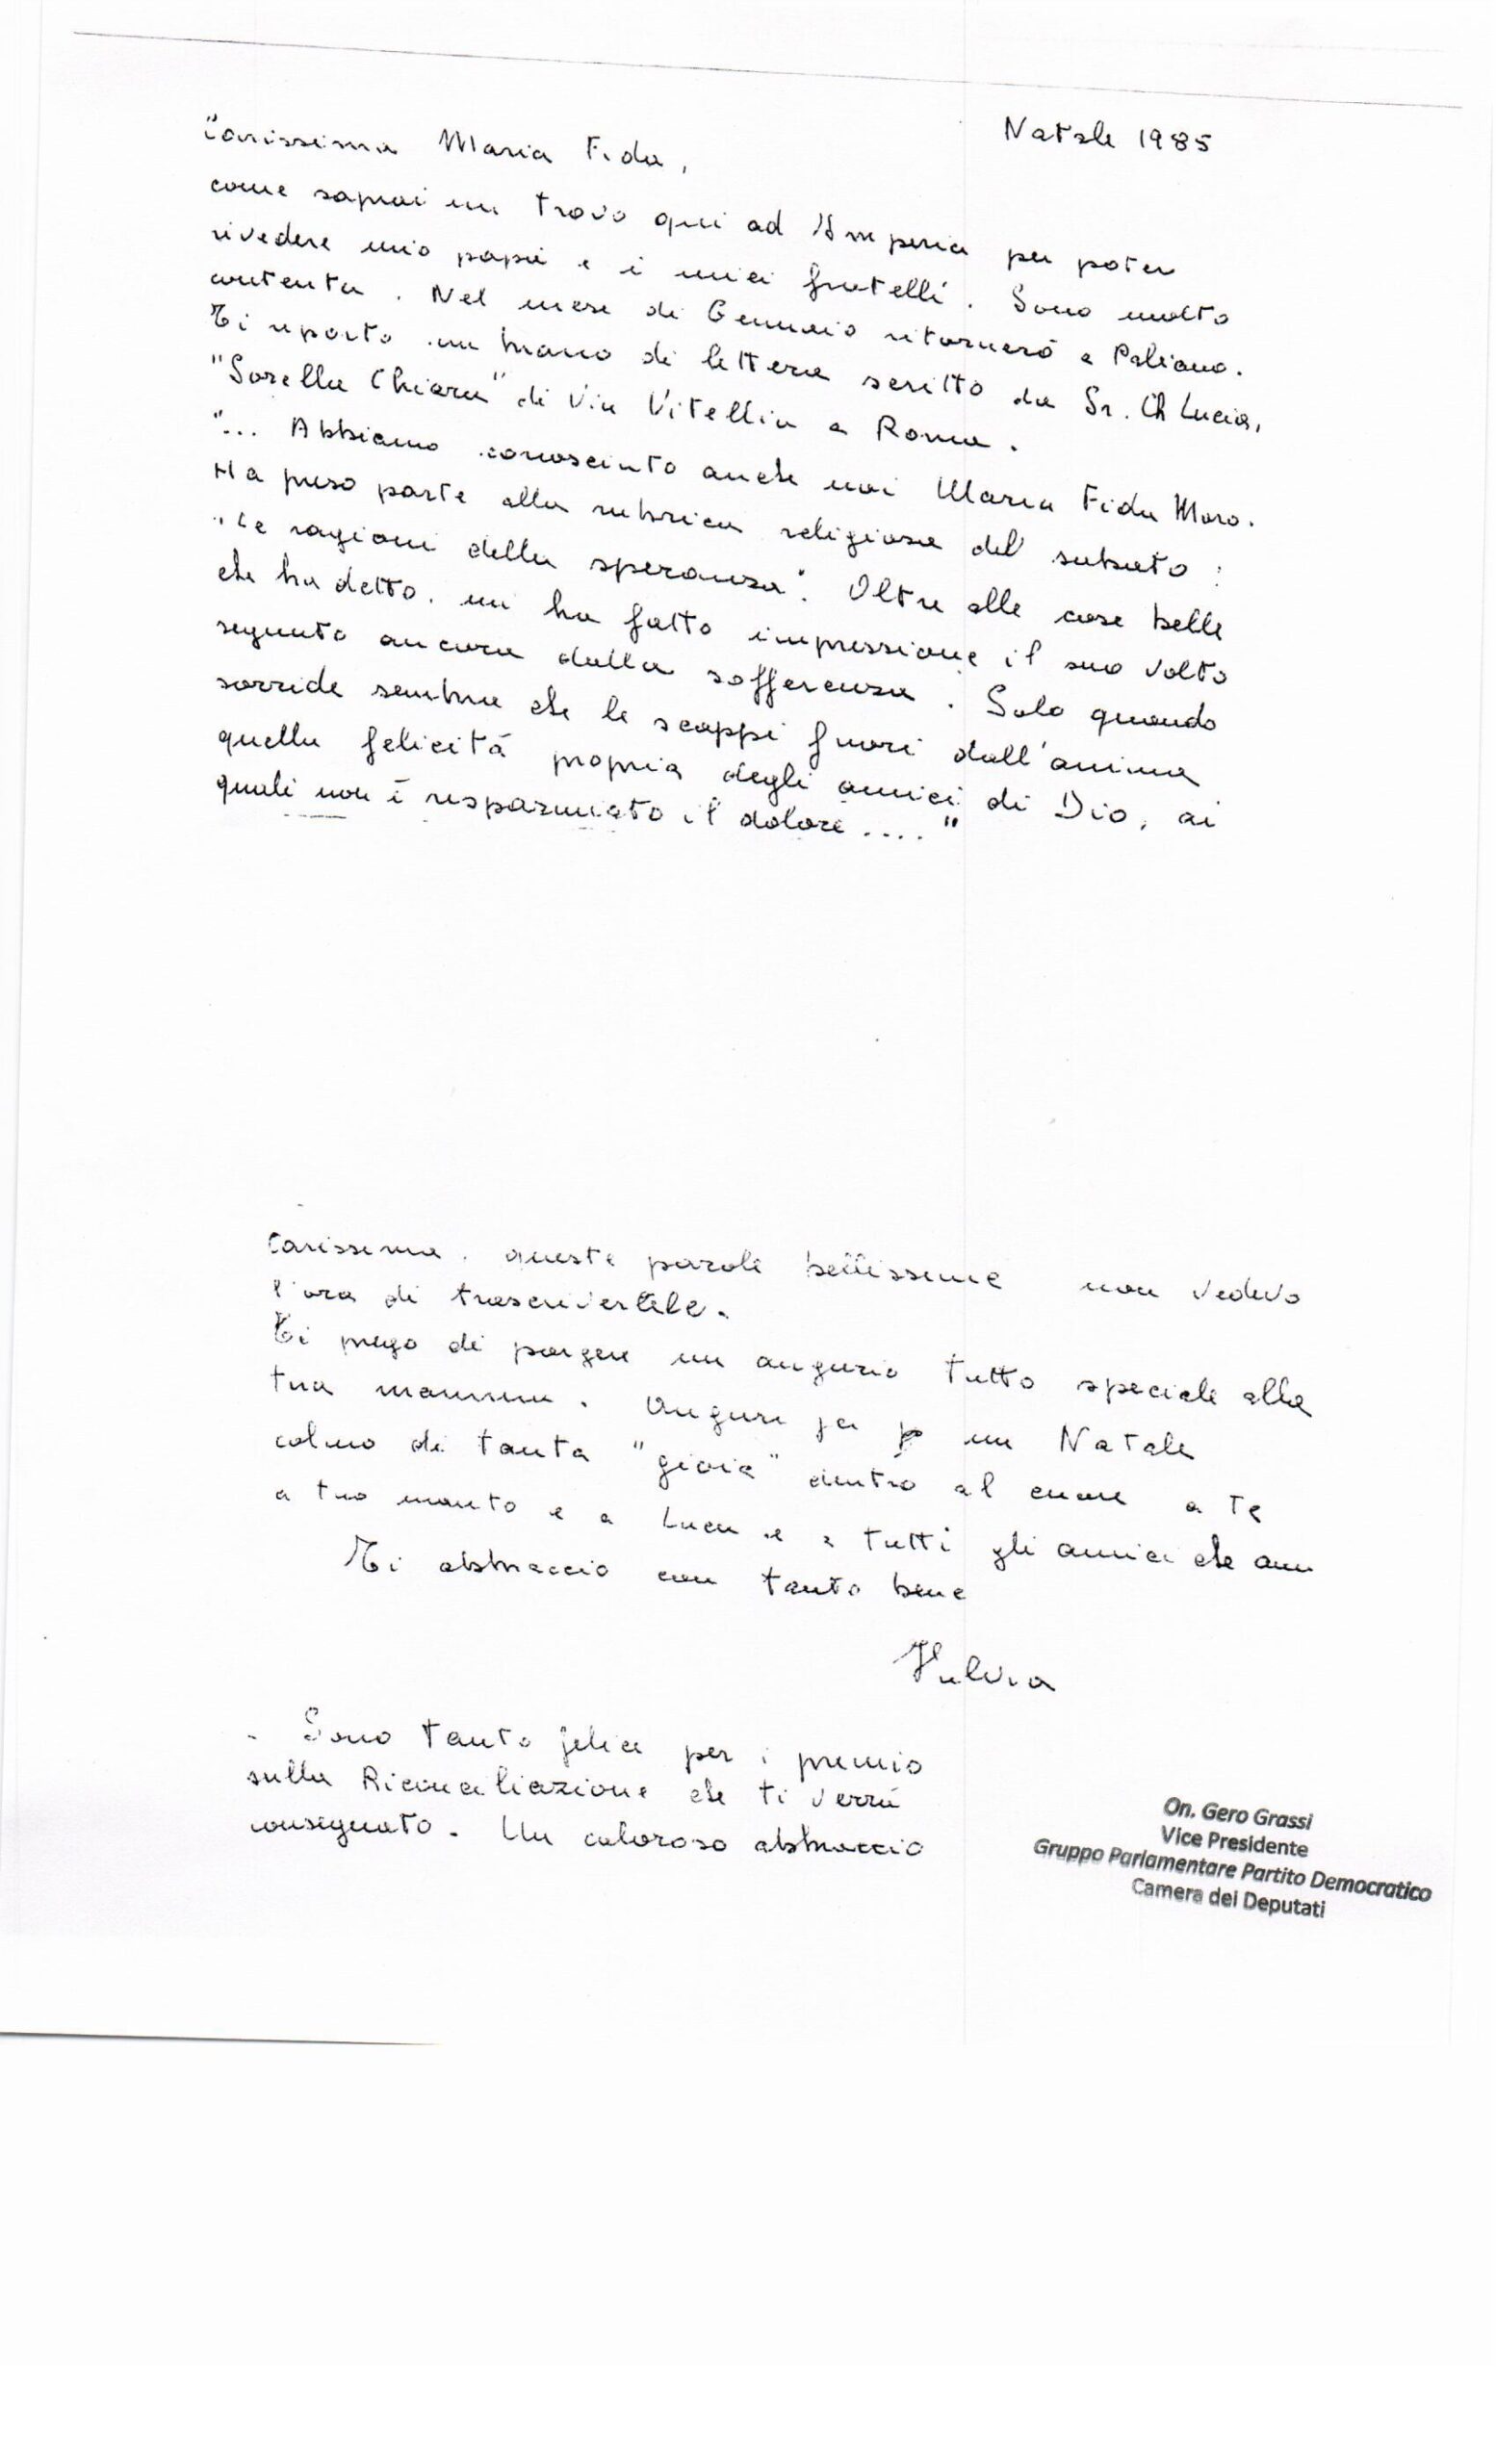 Natale 1985
Carissima Maria Fida,
come saprai mi trovo qui ad Imperia per poter
rivedere mio papà e i miei fratelli. Sono molto
contenta. Nel mese di Gennaio ritornerò a Paliano.
Ti riporto un brano di lettera scritto da Sr. Ch Lucia,
"Sorella Chiara" di Via Vitellia a Roma.
"... Abbiamo conosciuto anche noi Maria Fida Moro.
Ha preso parte alla rubrica religiosa del sabato:
"Le ragioni della speranza". Oltre alle cose belle
che ha detto, mi ha fatto impressione il suo volto
segnato ancora dalla sofferenza. Solo quando
sorride sembra che le scappi fuori dall'anima
quella felicità propria degli amici di Dio, ai
quali non è risparmiato il dolore...."
Carissima, queste parole bellissime non vedevo
l'ora di trascrivertele.
Ti prego di porgere un augurio tutto speciale alla
tua mamma. Auguri per un Natale
colmo di tanta "gioia" dentro al cuore a te
a tuo marito e a Luca e a tutti gli amici che
Ti abbraccio con tanto bene
Fulvia
- Sono tanto felice per i premio
sulla Riconciliazione che ti verrà
consegnato. Un caloroso abbraccio
On. Gero Grassi
Vice Presidente
Gruppo Parlamentare Partito Democratico
Camera dei Deputati